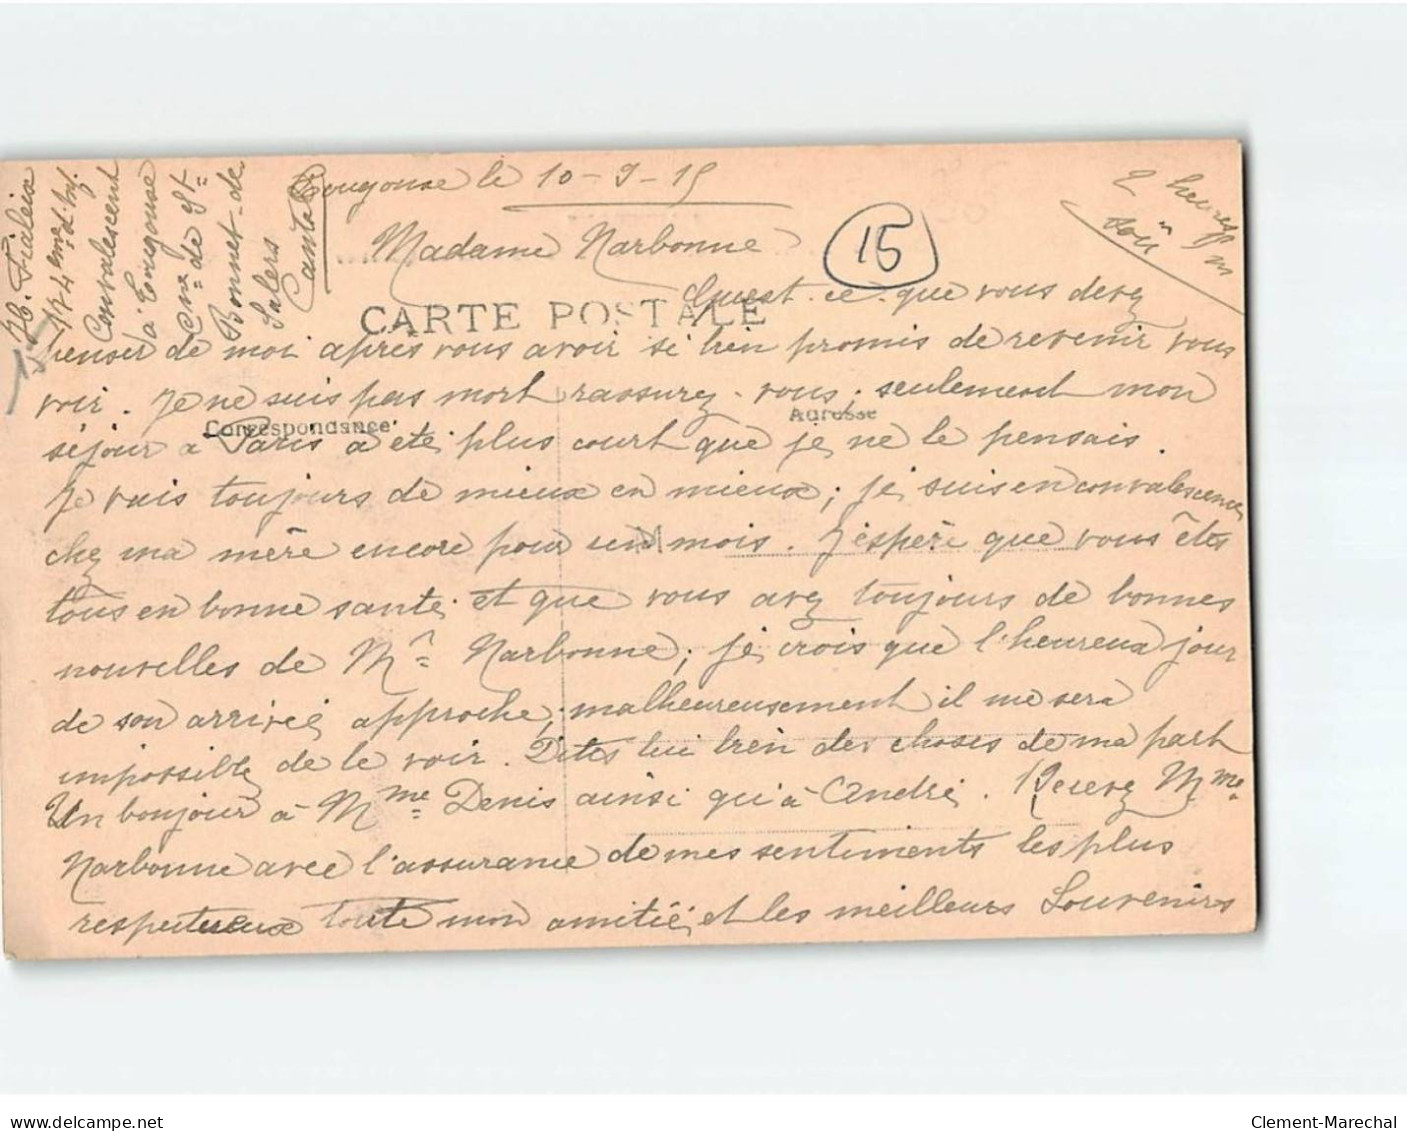 Tougouse le 10-9-15
2 heures
Madame Narbonne
15
Qu'est-ce que vous devez
CARTE POSTALE
penser de moi après vous avoir si bien promis de revenir vous
voir. Je ne suis pas mort rassurez-vous; seulement mon
Correspondance
Adresse
séjour à Paris a été plus court que je ne le pensais.
Je vais toujours de mieux en mieux; je suis en convalescence
chez ma mère encore pour un mois. J'espère que vous êtes
tous en bonne santé et que vous avez toujours de bonnes
nouvelles de Mr Narbonne; je crois que l'heureux jour
de son arrivée approche; malheureusement il me sera
impossible de le voir. Dites lui bien des choses de ma part
Un bonjour à Mme Denis ainsi qu'à André. Recevez Mme
Narbonne avec l'assurance de mes sentiments les plus
respectueux toute mon amitié et les meilleurs Souvenirs
Fialeix
174ème d'Inf.
Convalescent
à Tougouse
Cne de St-
Bonnet-de
Salers
Cantal
delcampe.net
Clement-Marechal